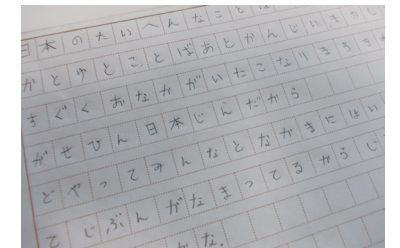 日本のたいへんなことは
がとゆとことばあとかんじいき
すぐくおなかがいたこなります
がせひん日本じんだがう
どやってみんなとなかまにはい
てじぶんがなまってるからじ
がな。